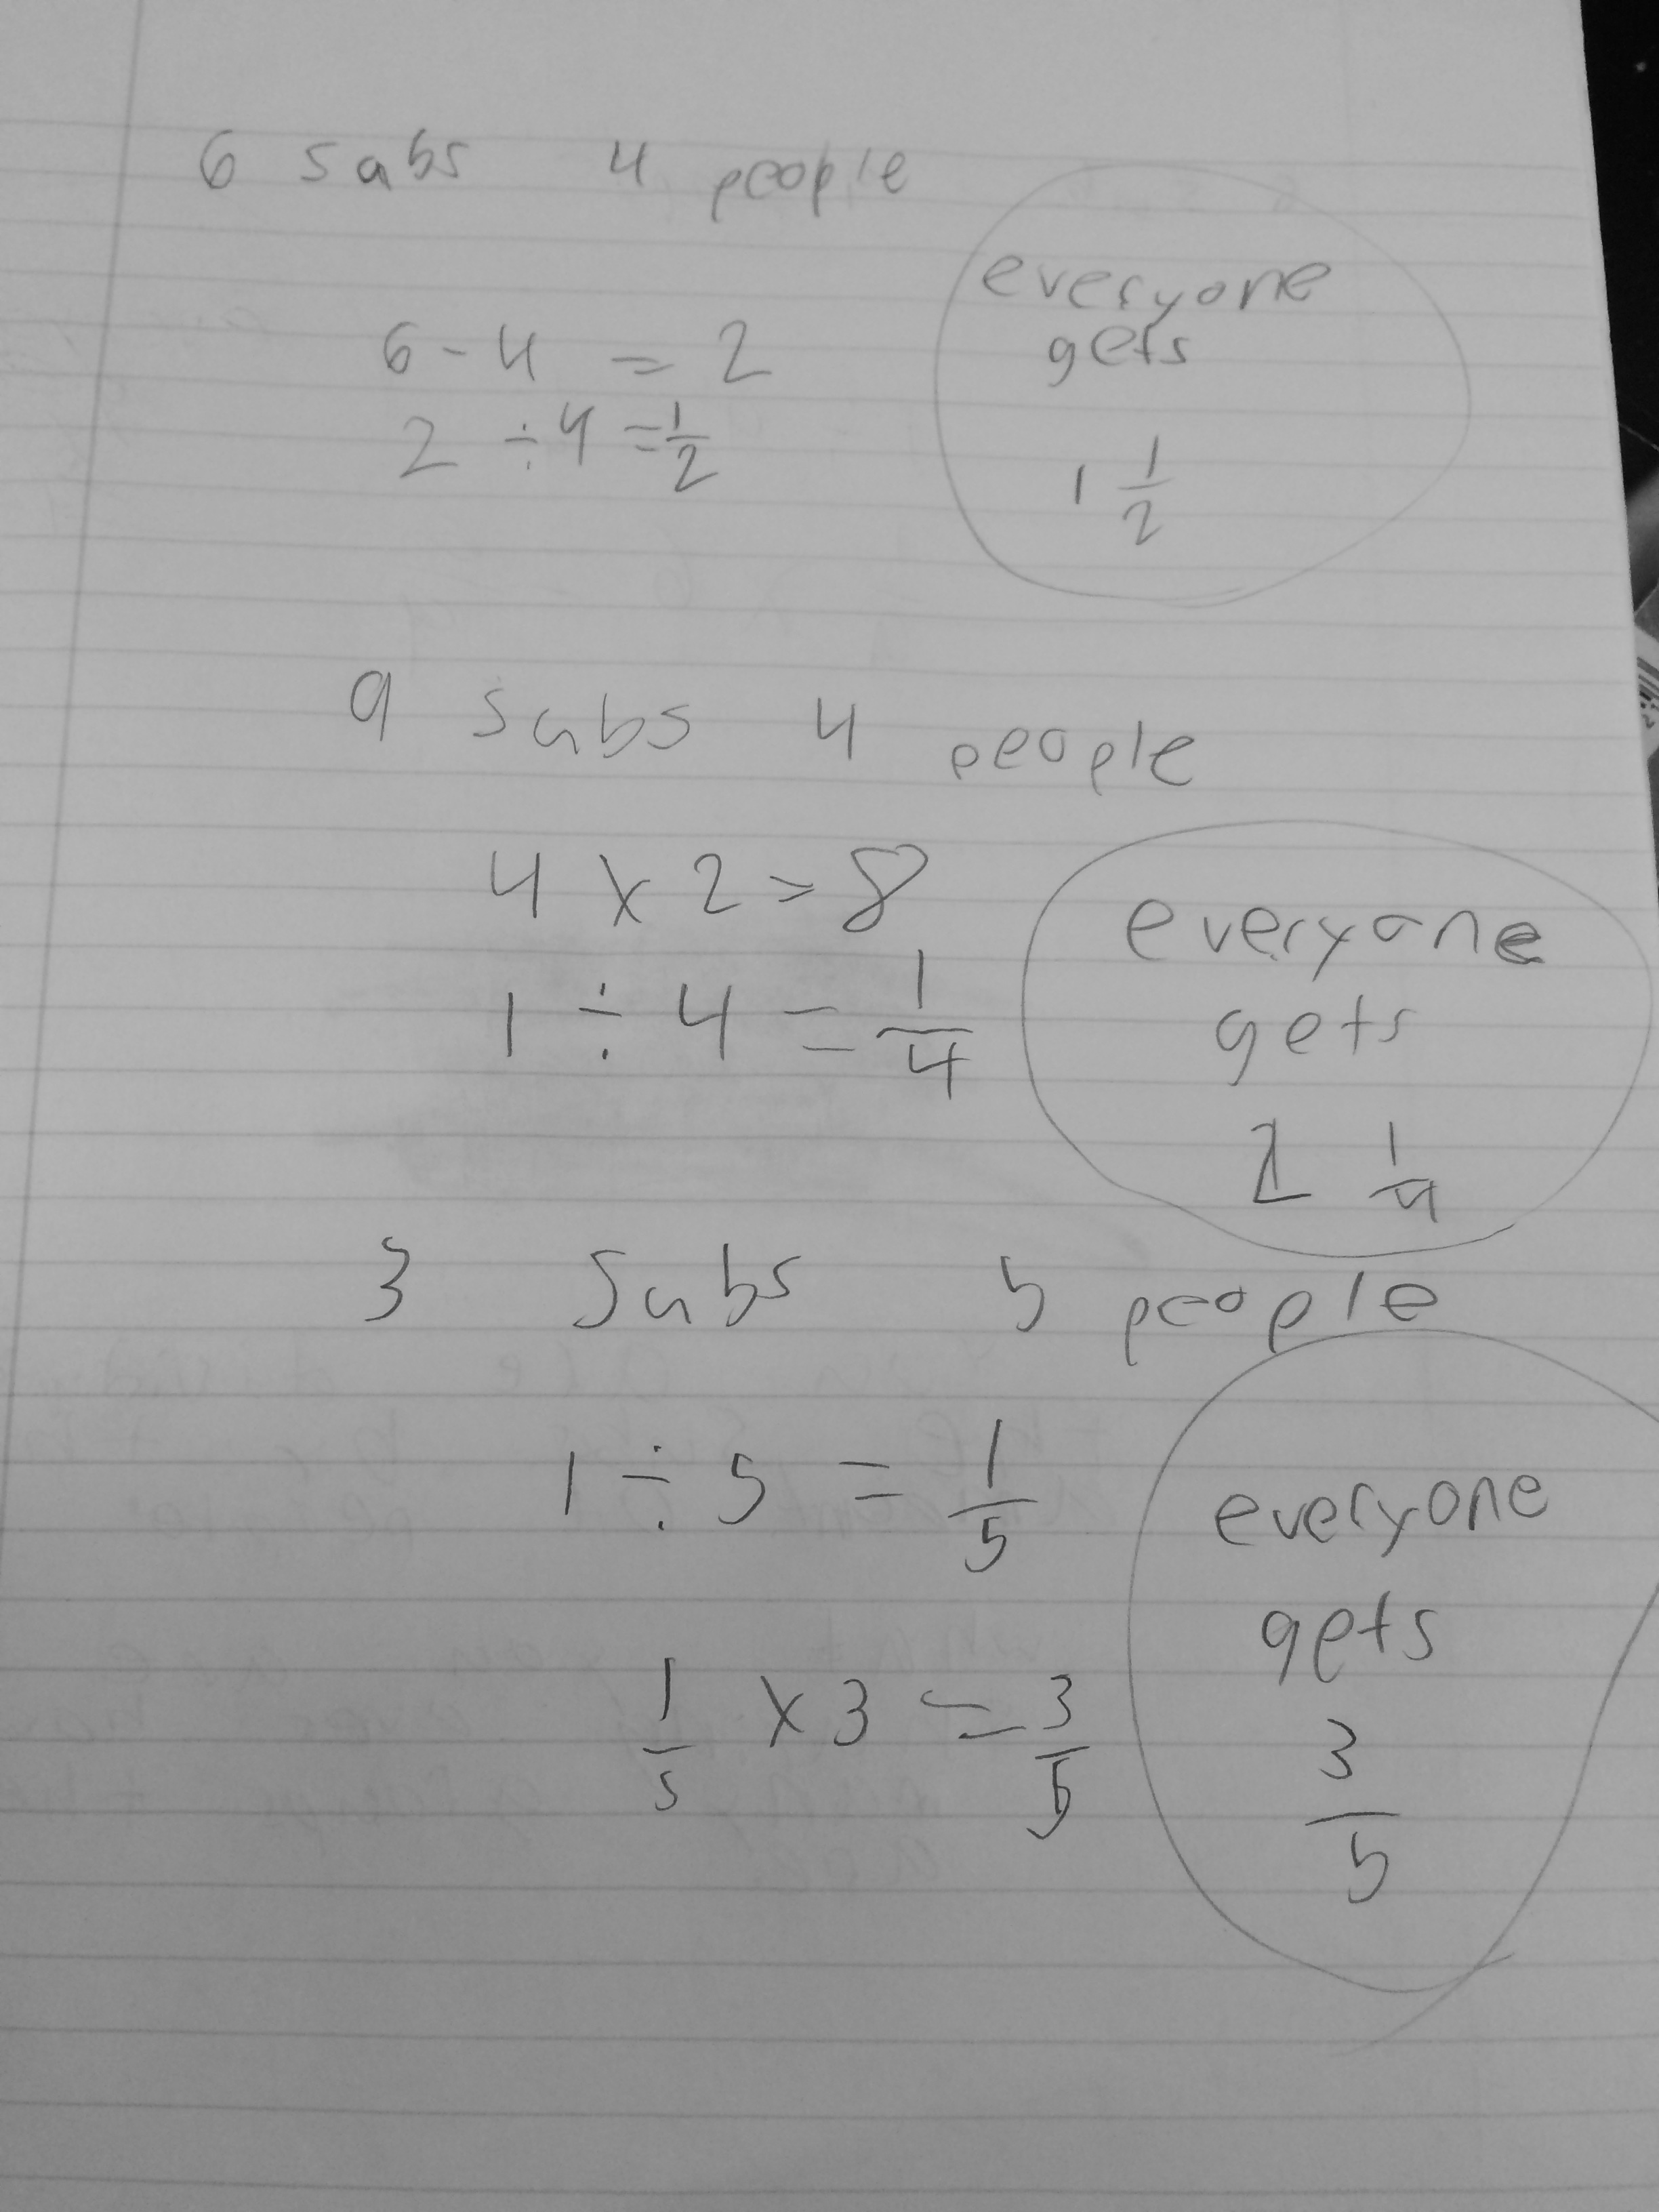 6 subs 4 people
6 - 4 = 2
2 ÷ 4 = 1/2
everyone
gets
1 1/2
9 subs 4 people
4 x 2 = 8
1 ÷ 4 = 1/4
everyone
gets
2 1/4
3 subs 5 people
1 ÷ 5 = 1/5
1/5 x 3 = 3/5
everyone
gets
3/5